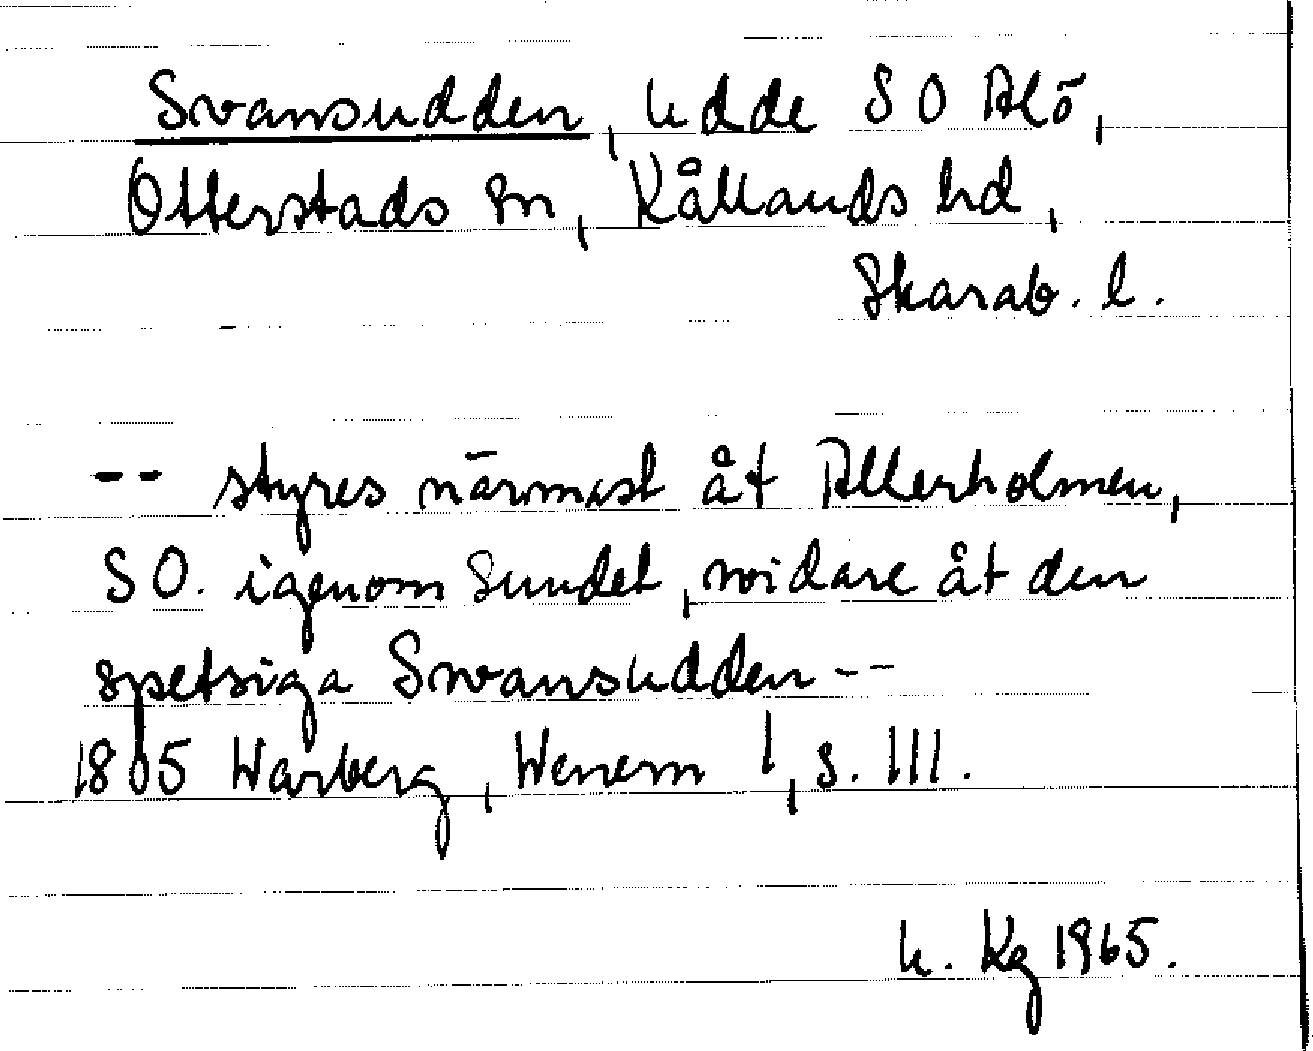 Svansudden, udde SO Alö,
Otterstads sn, Kållands hd,
Skarab. l.
-- styres närmast åt Allerholmen,
SO. igenom sundet, vidare åt den
spetsiga Svansudden --
1805 Warberg, Wenern I, s. 111.
U. Kg 1965.